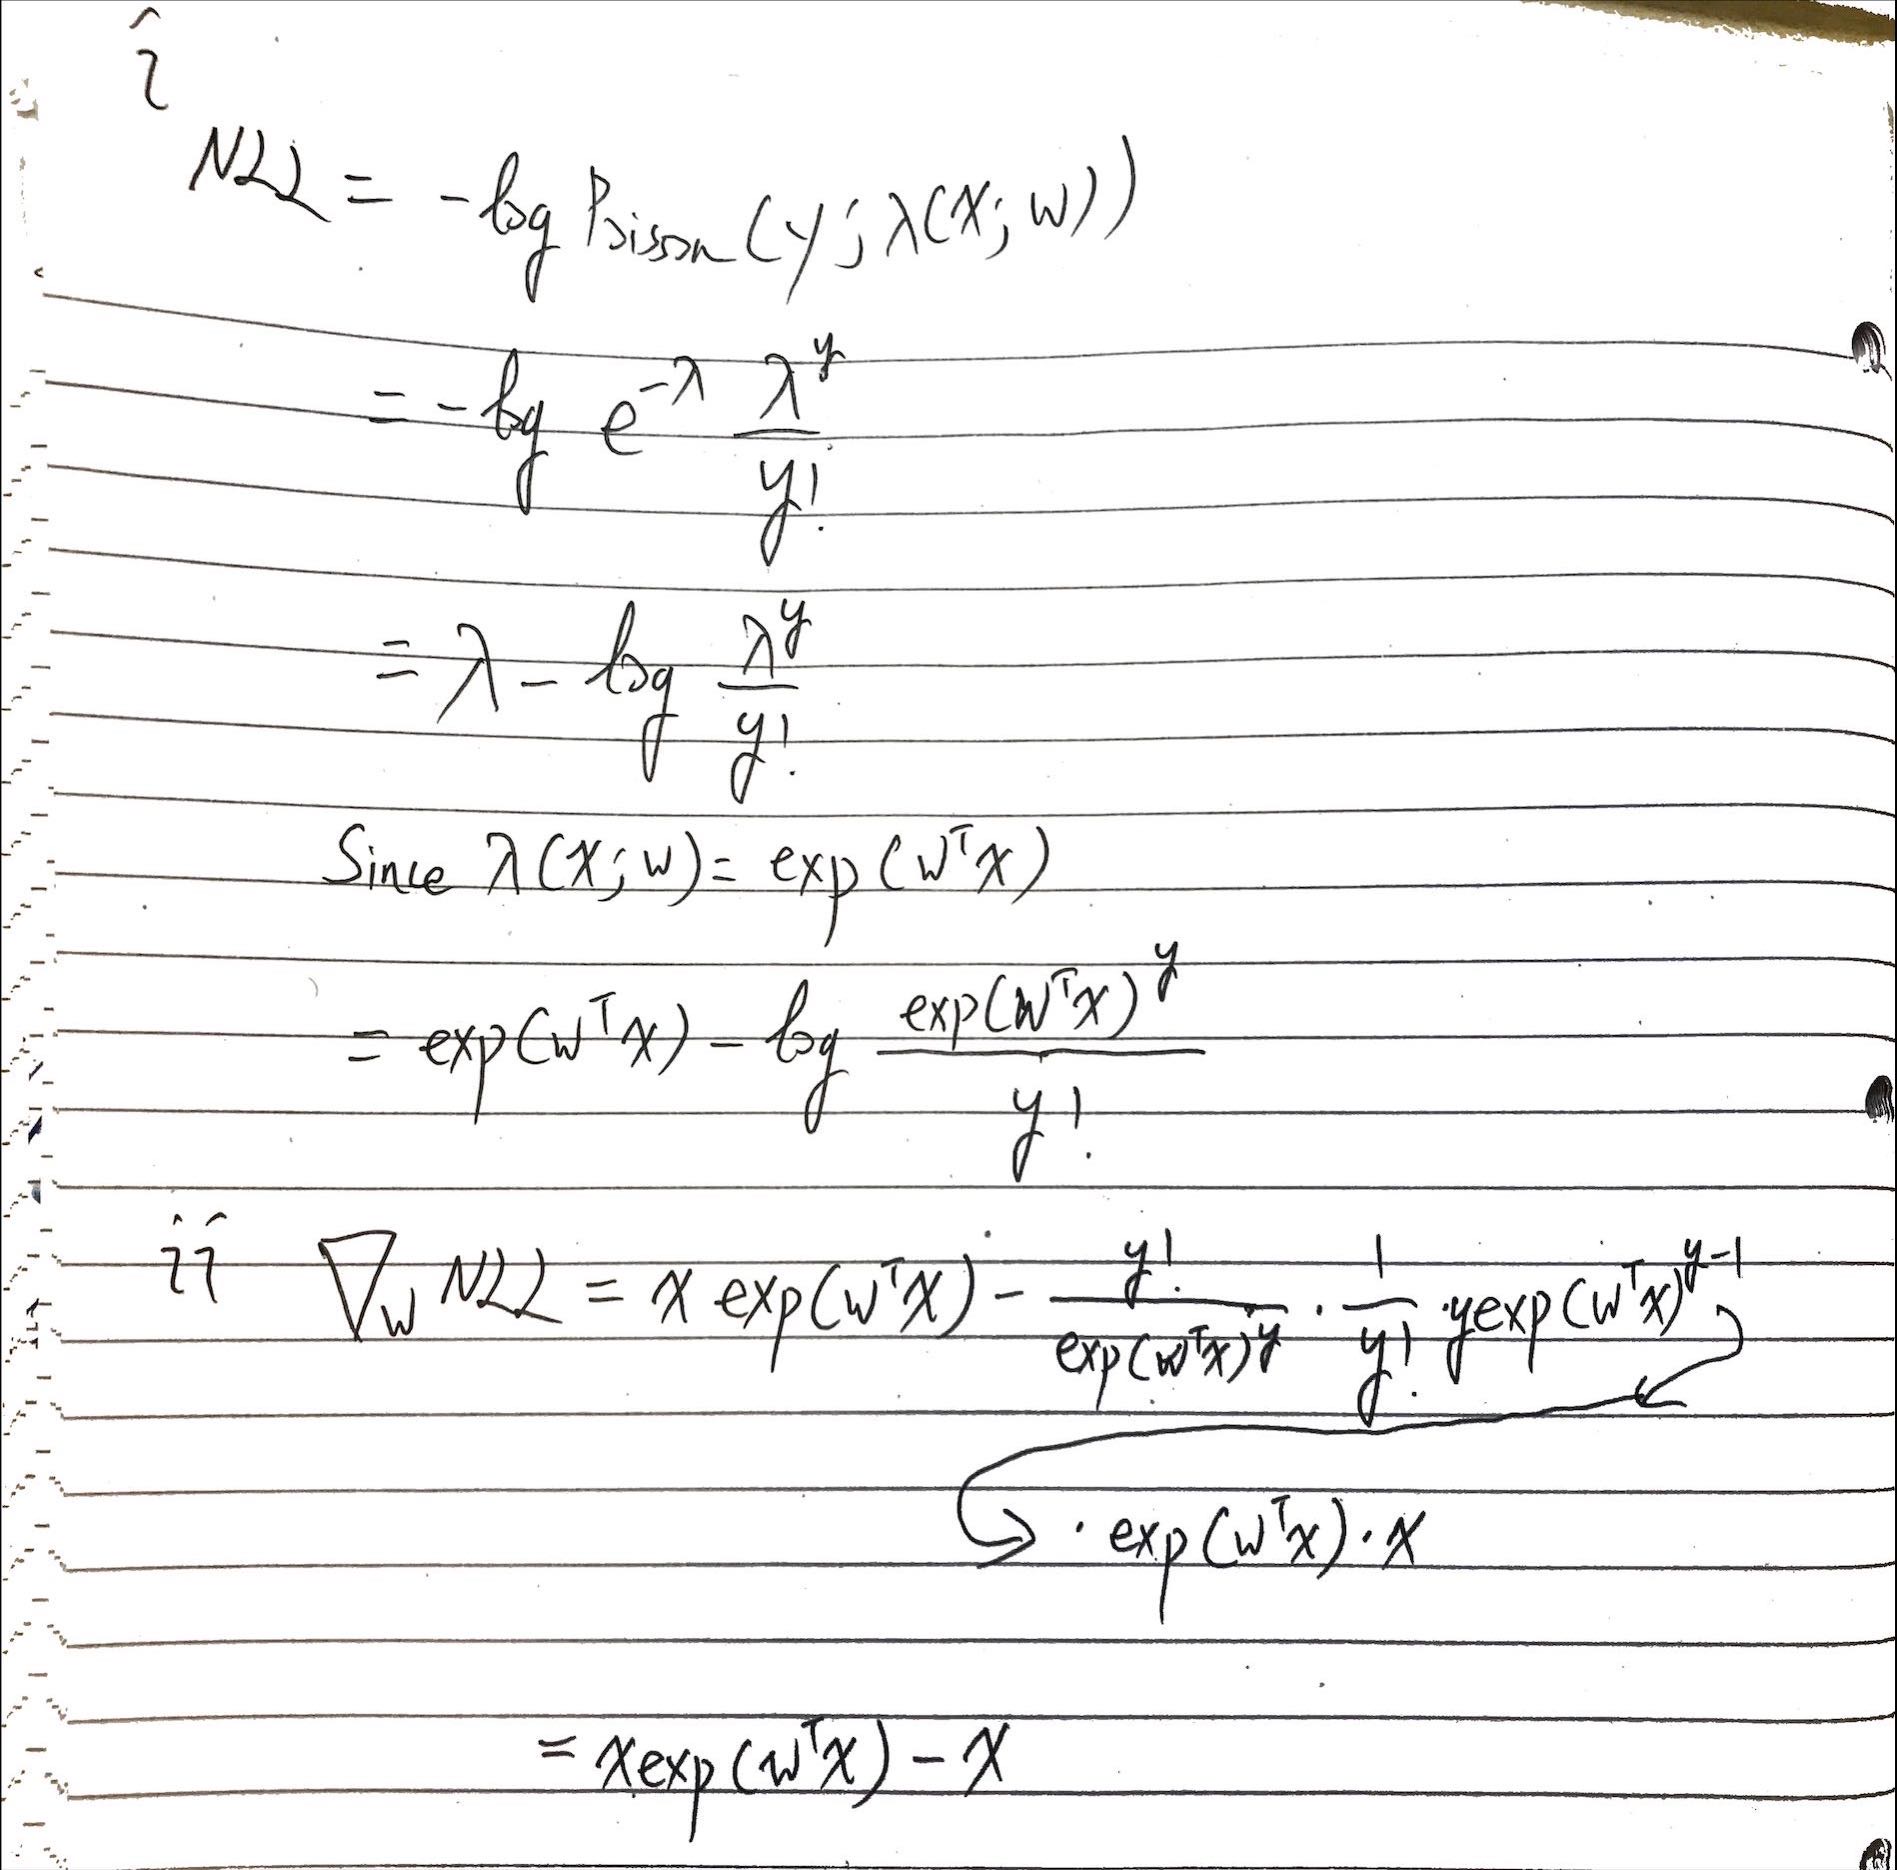 i
NLL = -log Poisson(y; λ(x; w))
= -log e^{-λ} \frac{λ^y}{y!}
= λ - log \frac{λ^y}{y!}
Since λ(x; w) = exp(w^T x)
= exp(w^T x) - log \frac{exp(w^T x)^y}{y!}
ii ∇_w NLL = x exp(w^T x) - \frac{y!}{exp(w^T x)^y} · \frac{1}{y!} · y exp(w^T x)^{y-1}
· exp(w^T x) · x
= x exp(w^T x) - x